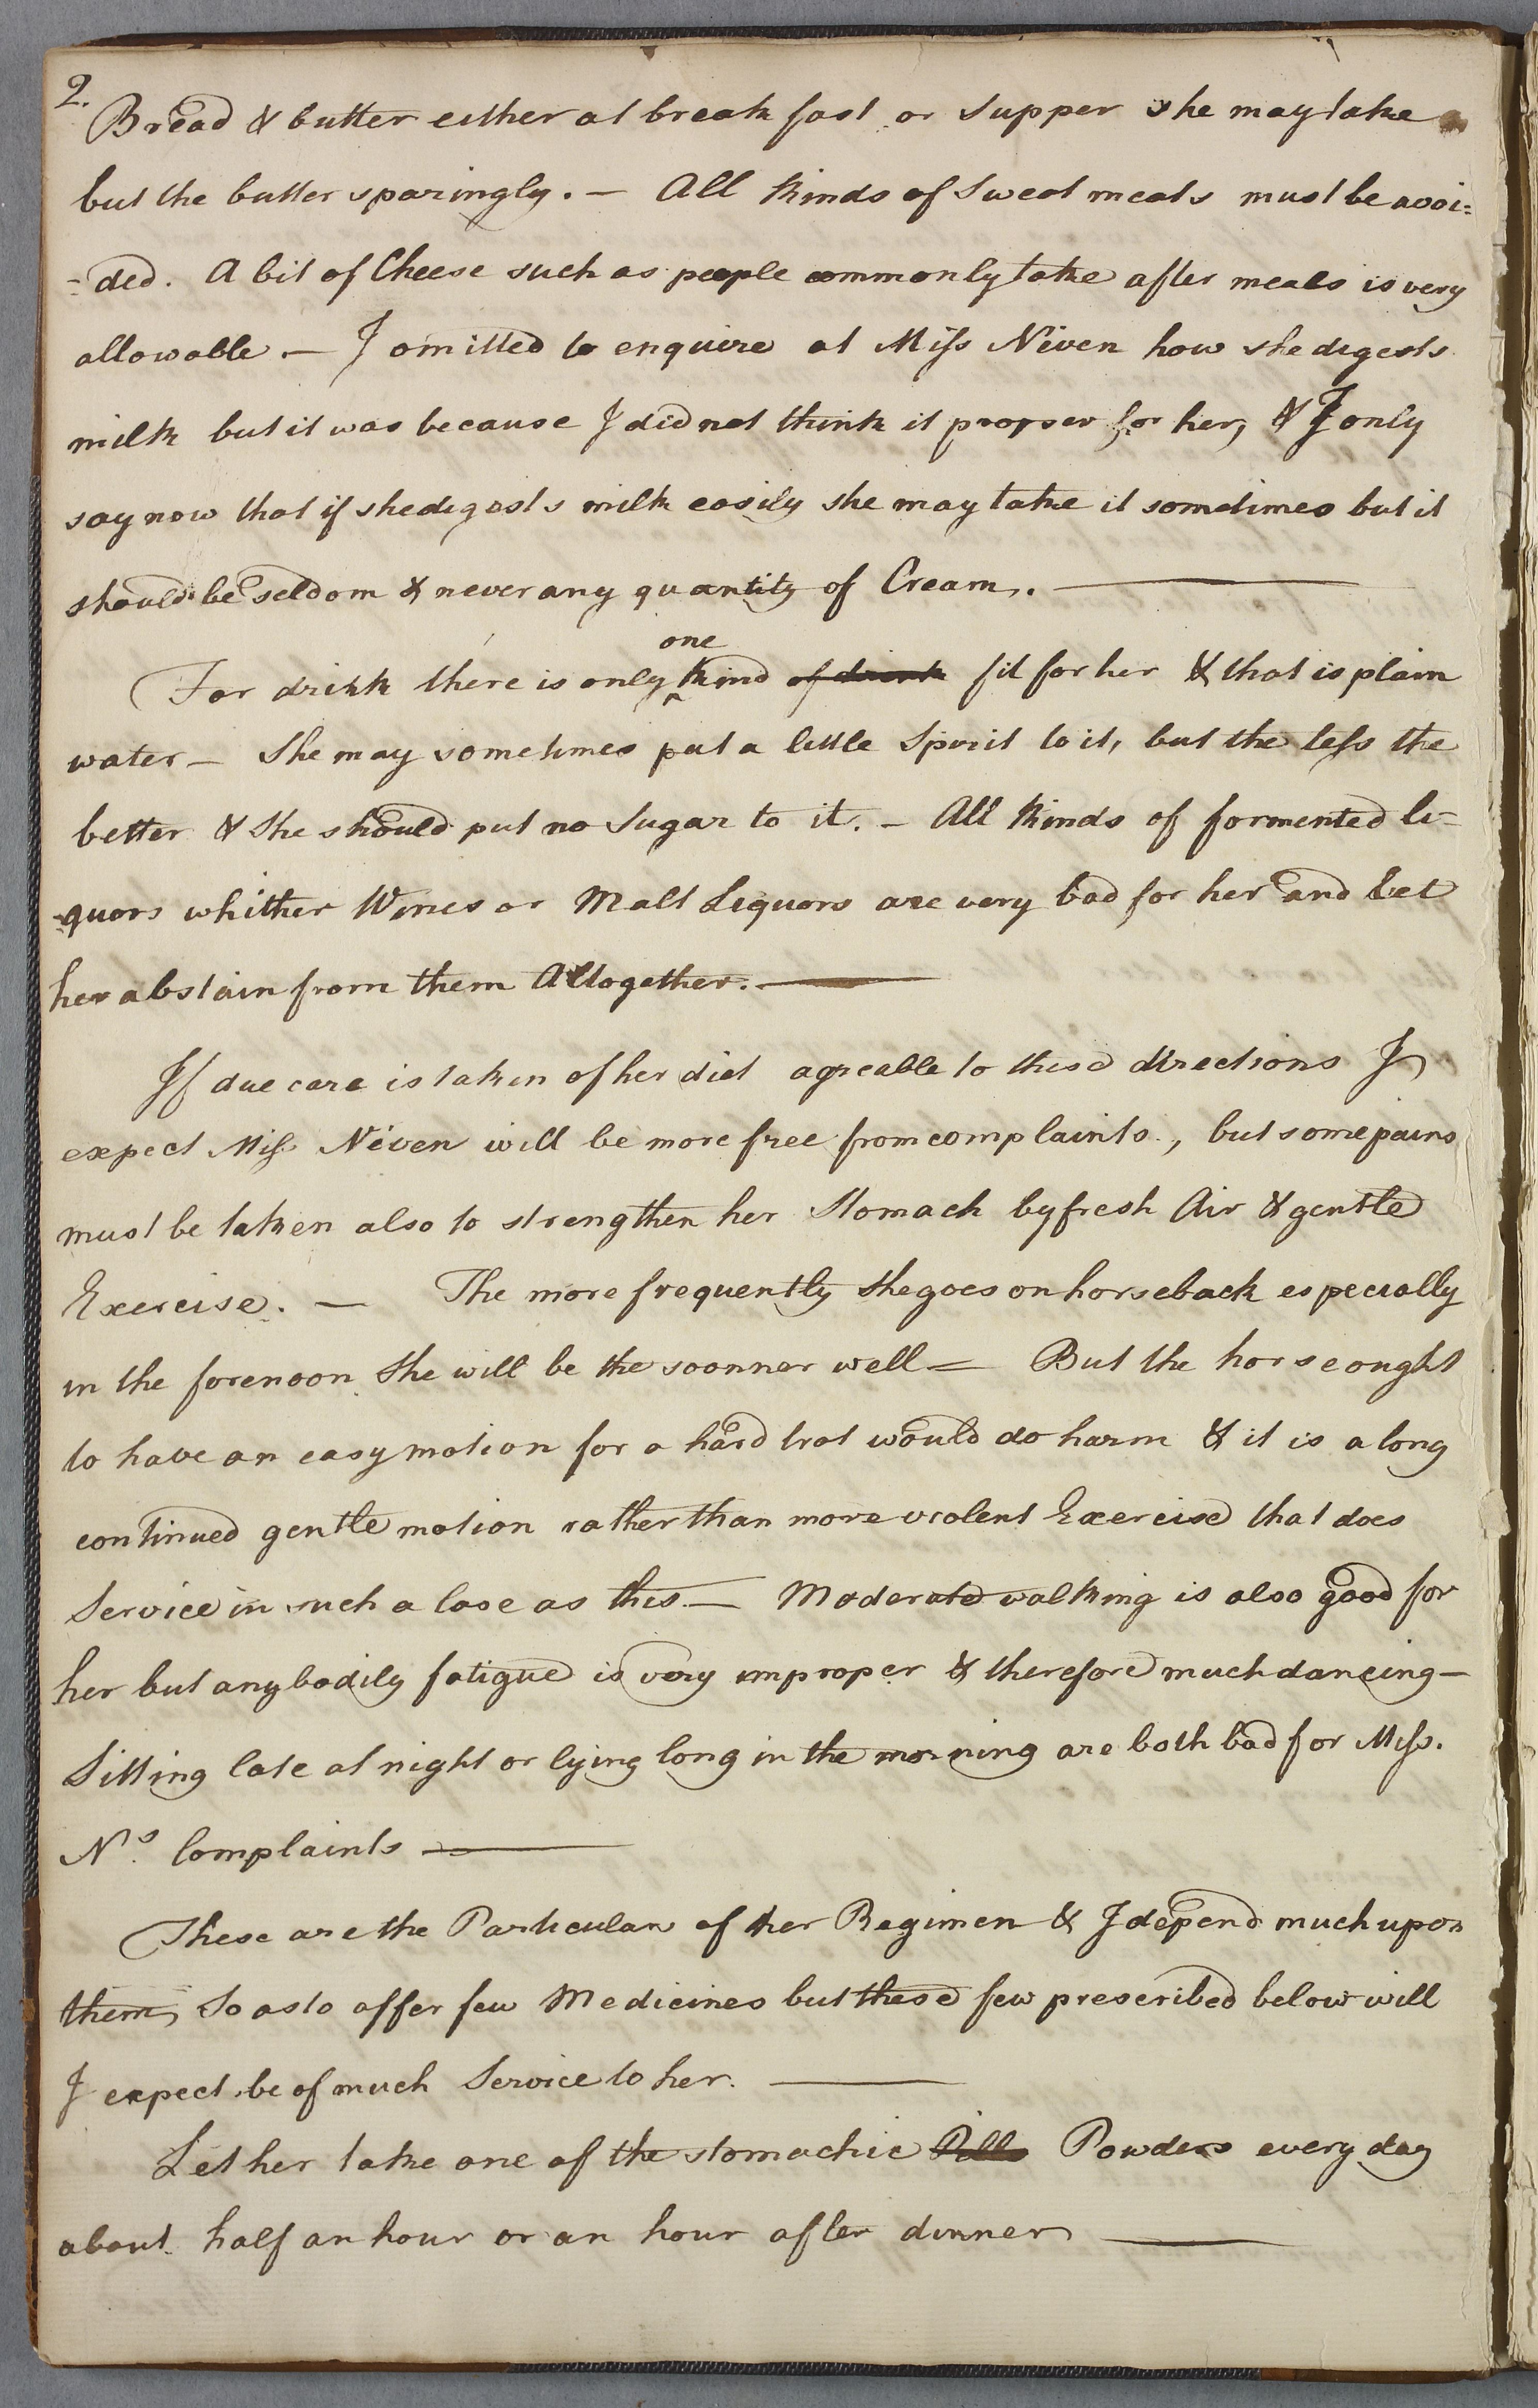 2.
Bread & butter either at break fast or Supper she may take
but the butter sparingly. — All kinds of Sweet meats must be avoi=
=ded. A bit of Cheese such as people commonly take after meals is very
allowable. — I omitted to enquire at Miss Niven how she digests
milk but it was because I did not think it proper for her, & I only
say now that if she digests milk easily she may take it sometimes but it
should be seldom & never any quantity of Cream. —
one
For drink there is only ^ kind of drink fit for her & that is plain
water — She may sometimes put a little Spirit to it, but the less the
better & She should put no Sugar to it. — All kinds of formented li=
=quors whither Wines or Malt Liquors are very bad for her and let
her abstain from them Altogether. —
If due care is taken of her diet agreable to these directions I
expect Miss Niven will be more free from complaints, but some pains
must be taken also to strengthen her Stomach by fresh Air & gentle
Exercise. — The more frequently she goes on horseback especially
in the forenoon She will be the soonner well = But the horse ought
to have an easy motion for a hard trot would do harm & it is a long
continued gentle motion rather than more violent Exercise that does
Service in such a Case as this — Moderate walking is also good for
her but any bodily fatigue is very improper & therefore much dancing —
Sitting late at night or lying long in the morning are both bad for Miss.
N.s Complaints —
These are the Particulars of her Regimen & I depend much upon
them, So as to offer few Medicines but these few prescribed below will
I expect be of much Service to her. —
Let her take one of the stomachic Pills Powders every day
about half an hour or an hour after dinner —